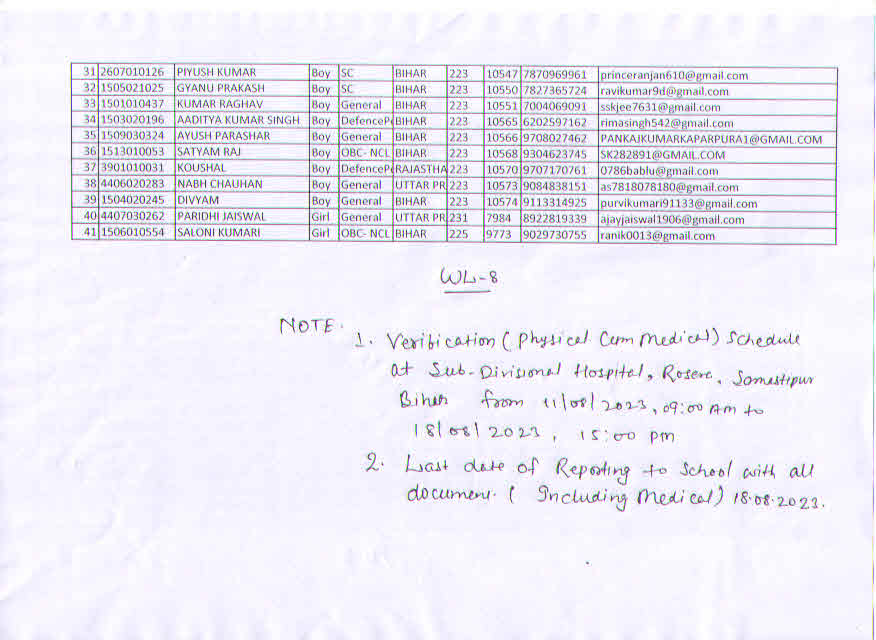 31 2607010126 PIYUSH KUMAR Boy SC BIHAR 223 10547 7870969961 princeranjan610@gmail.com
32 1505021025 GYANU PRAKASH Boy SC BIHAR 223 10550 7827365724 ravikumar9d@gmail.com
33 1501010437 KUMAR RAGHAV Boy General BIHAR 223 10551 7004069091 sskjee7631@gmail.com
34 1503020196 AADITYA KUMAR SINGH Boy DefencePe BIHAR 223 10565 6202597162 rimasingh542@gmail.com
35 1509030324 AYUSH PARASHAR Boy General BIHAR 223 10566 9708027462 PANKAJKUMARKAPARPURA1@GMAIL.COM
36 1513010053 SATYAM RAJ Boy OBC- NCL BIHAR 223 10568 9304623745 SK282891@GMAIL.COM
37 3901010031 KOUSHAL Boy DefencePe RAJASTHA 223 10570 9707170761 0786bablu@gmail.com
38 4406020283 NABH CHAUHAN Boy General UTTAR PR 223 10573 9084838151 as7818078180@gmail.com
39 1504020245 DIVYAM Boy General BIHAR 223 10574 9113314925 purvikumari91133@gmail.com
40 4407030262 PARIDHI JAISWAL Girl General UTTAR PR 231 7984 8922819339 ajayjaiswal1906@gmail.com
41 1506010554 SALONI KUMARI Girl OBC- NCL BIHAR 225 9773 9029730755 ranik0013@gmail.com
WL-8
NOTE.
1. Verification (Physical Cum Medical) Schedule
at Sub-Divisional Hospital, Rosera, Samastipur
Bihar from 11/08/2023, 09:00 AM to
18/08/2023, 15:00 PM
2. Last date of Reporting to School with all
document. ( Including Medical) 18.08.2023.